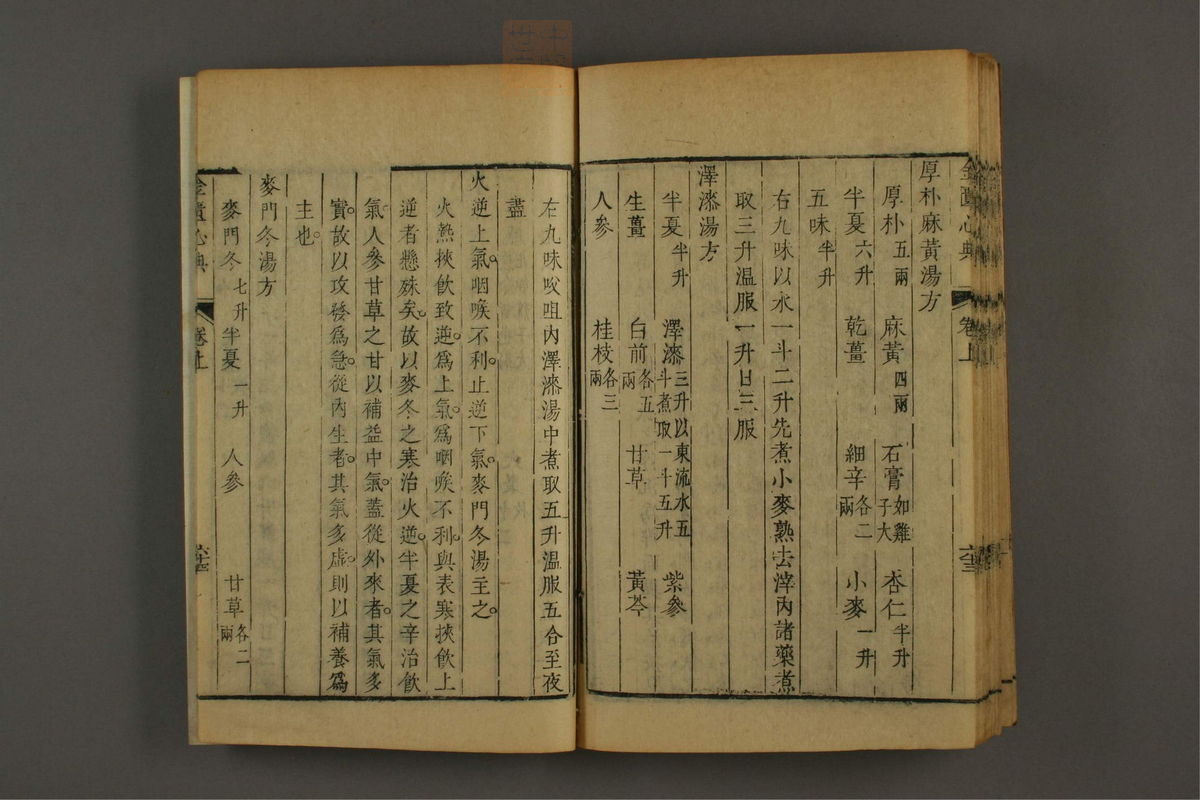 金匱心典
卷上
六十三
厚朴麻黃湯方
厚朴五兩 麻黃四兩 石膏如雞子大 杏仁半升
半夏六升 乾薑 細辛各二兩 小麥一升
五味半升
右九味以水一斗二升先煮小麥熟去滓內諸藥煮
取三升溫服一升日三服
澤漆湯方
半夏半升 澤漆三升以東流水五斗煮取一斗五升 紫參
生薑 白前各五兩 甘草 黃芩
人參 桂枝各三兩
右九味㕮咀內澤漆湯中煮取五升溫服五合至夜
盡
火逆上氣。咽喉不利。止逆下氣。麥門冬湯主之。
火熱挾飲致逆。爲上氣。爲咽喉不利。與表寒挾飲上
逆者懸殊矣。故以麥冬之寒治火逆。半夏之辛治飲
氣。人參甘草之甘以補益中氣。蓋從外來者。其氣多
實。故以攻發爲急。從內生者。其氣多虛。則以補養爲
主也。
麥門冬湯方
麥門冬七升 半夏一升 人參 甘草各二兩
金匱心典
卷上
六十三